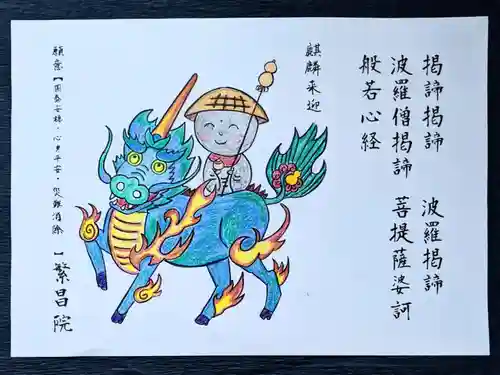 揭諦揭諦　波羅揭諦
波羅僧揭諦　菩提薩婆訶
般若心経
麒麟来迎
願意【国泰安穏・心身平安・災難消除】繁昌院